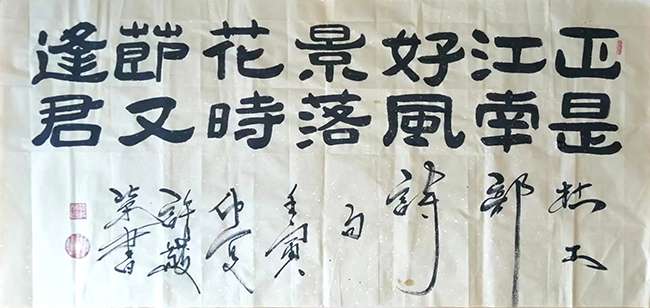 正是
江南
好風
景落
花時
節又
逢君
杜工
部
詩
句
壬寅
仲夏
許
榮書